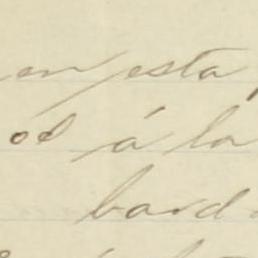 en esta
od á la
bord